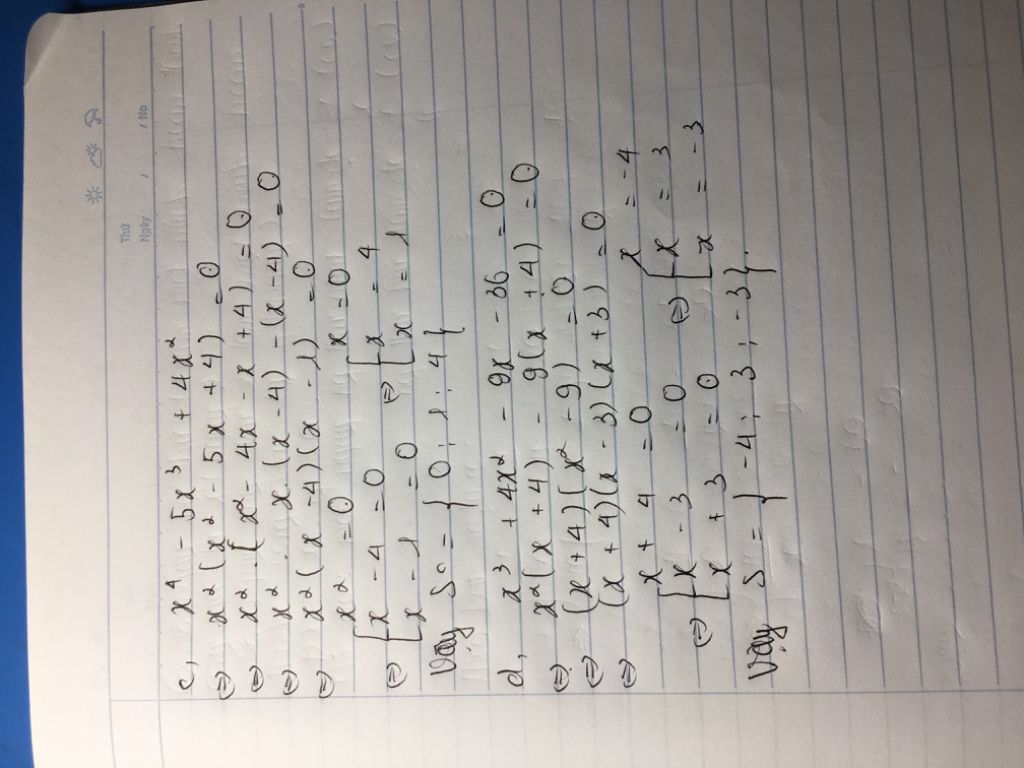 Thứ
Ngày / / No
c, x⁴ - 5x³ + 4x²
⇔ x²(x² - 5x + 4) = 0
⇔ x².[x² - 4x - x + 4) = 0
⇔ x². x.(x - 4) - (x - 4) = 0
⇔ x²(x - 4)(x - 1) = 0
x² = 0 x = 0
⇔ [x - 4 = 0 ⇔ [x = 4
[x - 1 = 0 [x = 1
Vậy S = {0; 1; 4}
d, x³ + 4x² - 9x - 36 = 0
⇔ x²(x + 4) - 9(x + 4) = 0
⇔ (x + 4)(x² - 9) = 0
⇔ (x + 4)(x - 3)(x + 3) = 0
x + 4 = 0 x = -4
⇔ [x - 3 = 0 ⇔ [x = 3
[x + 3 = 0 [x = -3
Vậy S = {-4; 3; -3}.